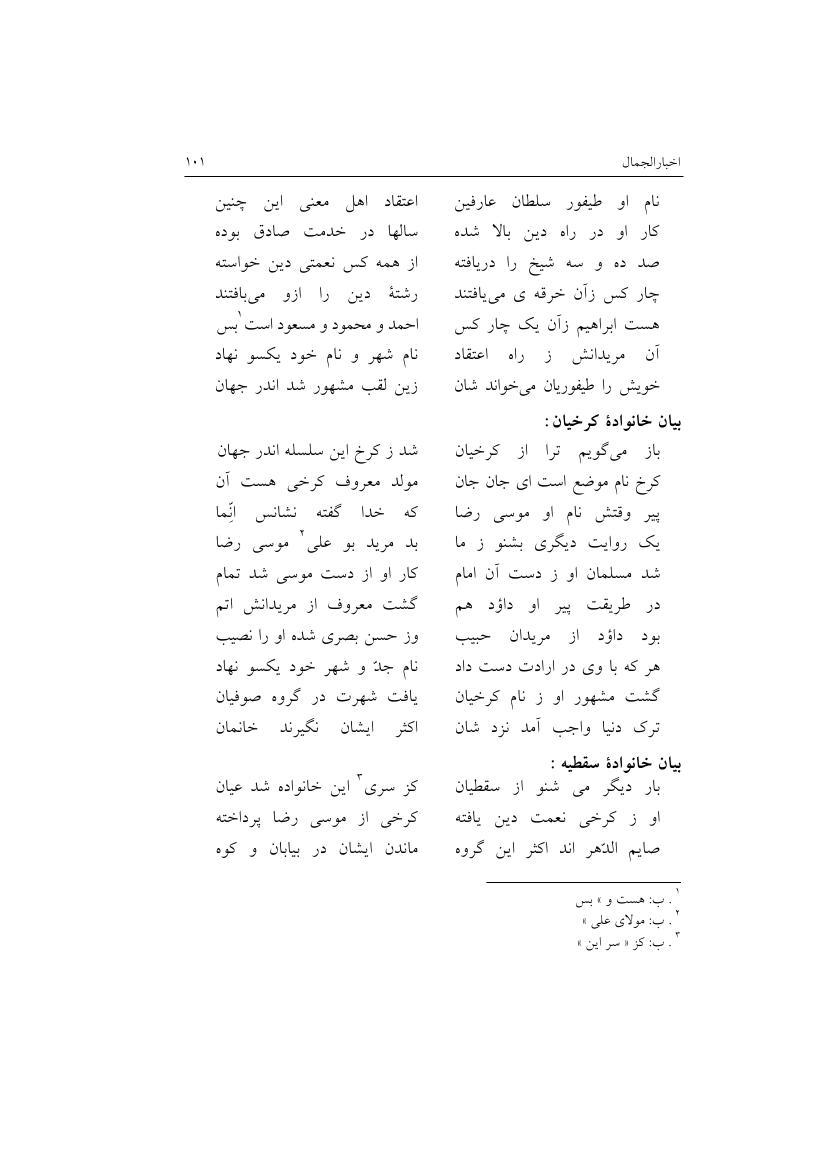 اخبارالجمال ۱۰۱
نام او طیفور سلطان عارفین اعتقاد اهل معنی این چنین
کار او در راه دین بالا شده سالها در خدمت صادق بوده
صد ده و سه شیخ را دریافته از همه کس نعمتی دین خواسته
چار کس زآن خرقه ی می‌یافتند رشتهٔ دین را ازو می‌بافتند
هست ابراهیم زآن یک چار کس احمد و محمود و مسعود است۱ بس
آن مریدانش ز راه اعتقاد نام شهر و نام خود یکسو نهاد
خویش را طیفوریان می‌خواند شان زین لقب مشهور شد اندر جهان
بیان خانوادهٔ کرخیان:
باز می‌گویم ترا از کرخیان شد ز کرخ این سلسله اندر جهان
کرخ نام موضع است ای جان جان مولد معروف کرخی هست آن
پیر وقتش نام او موسی رضا که خدا گفته نشانس انِّما
یک روایت دیگری بشنو ز ما بد مرید بو علی۲ موسی رضا
شد مسلمان او ز دست آن امام کار او از دست موسی شد تمام
در طریقت پیر او داؤد هم گشت معروف از مریدانش اتم
بود داؤد از مریدان حبیب وز حسن بصری شده او را نصیب
هر که با وی در ارادت دست داد نام جدّ و شهر خود یکسو نهاد
گشت مشهور او ز نام کرخیان یافت شهرت در گروه صوفیان
ترک دنیا واجب آمد نزد شان اکثر ایشان نگیرند خانمان
بیان خانوادهٔ سقطیه :
بار دیگر می شنو از سقطیان کز سری۳ این خانواده شد عیان
او ز کرخی نعمت دین یافته کرخی از موسی رضا پرداخته
صایم الدّهر اند اکثر این گروه ماندن ایشان در بیابان و کوه
۱. ب: هست و » بس
۲. ب: مولای علی »
۳. ب: کز « سر این »